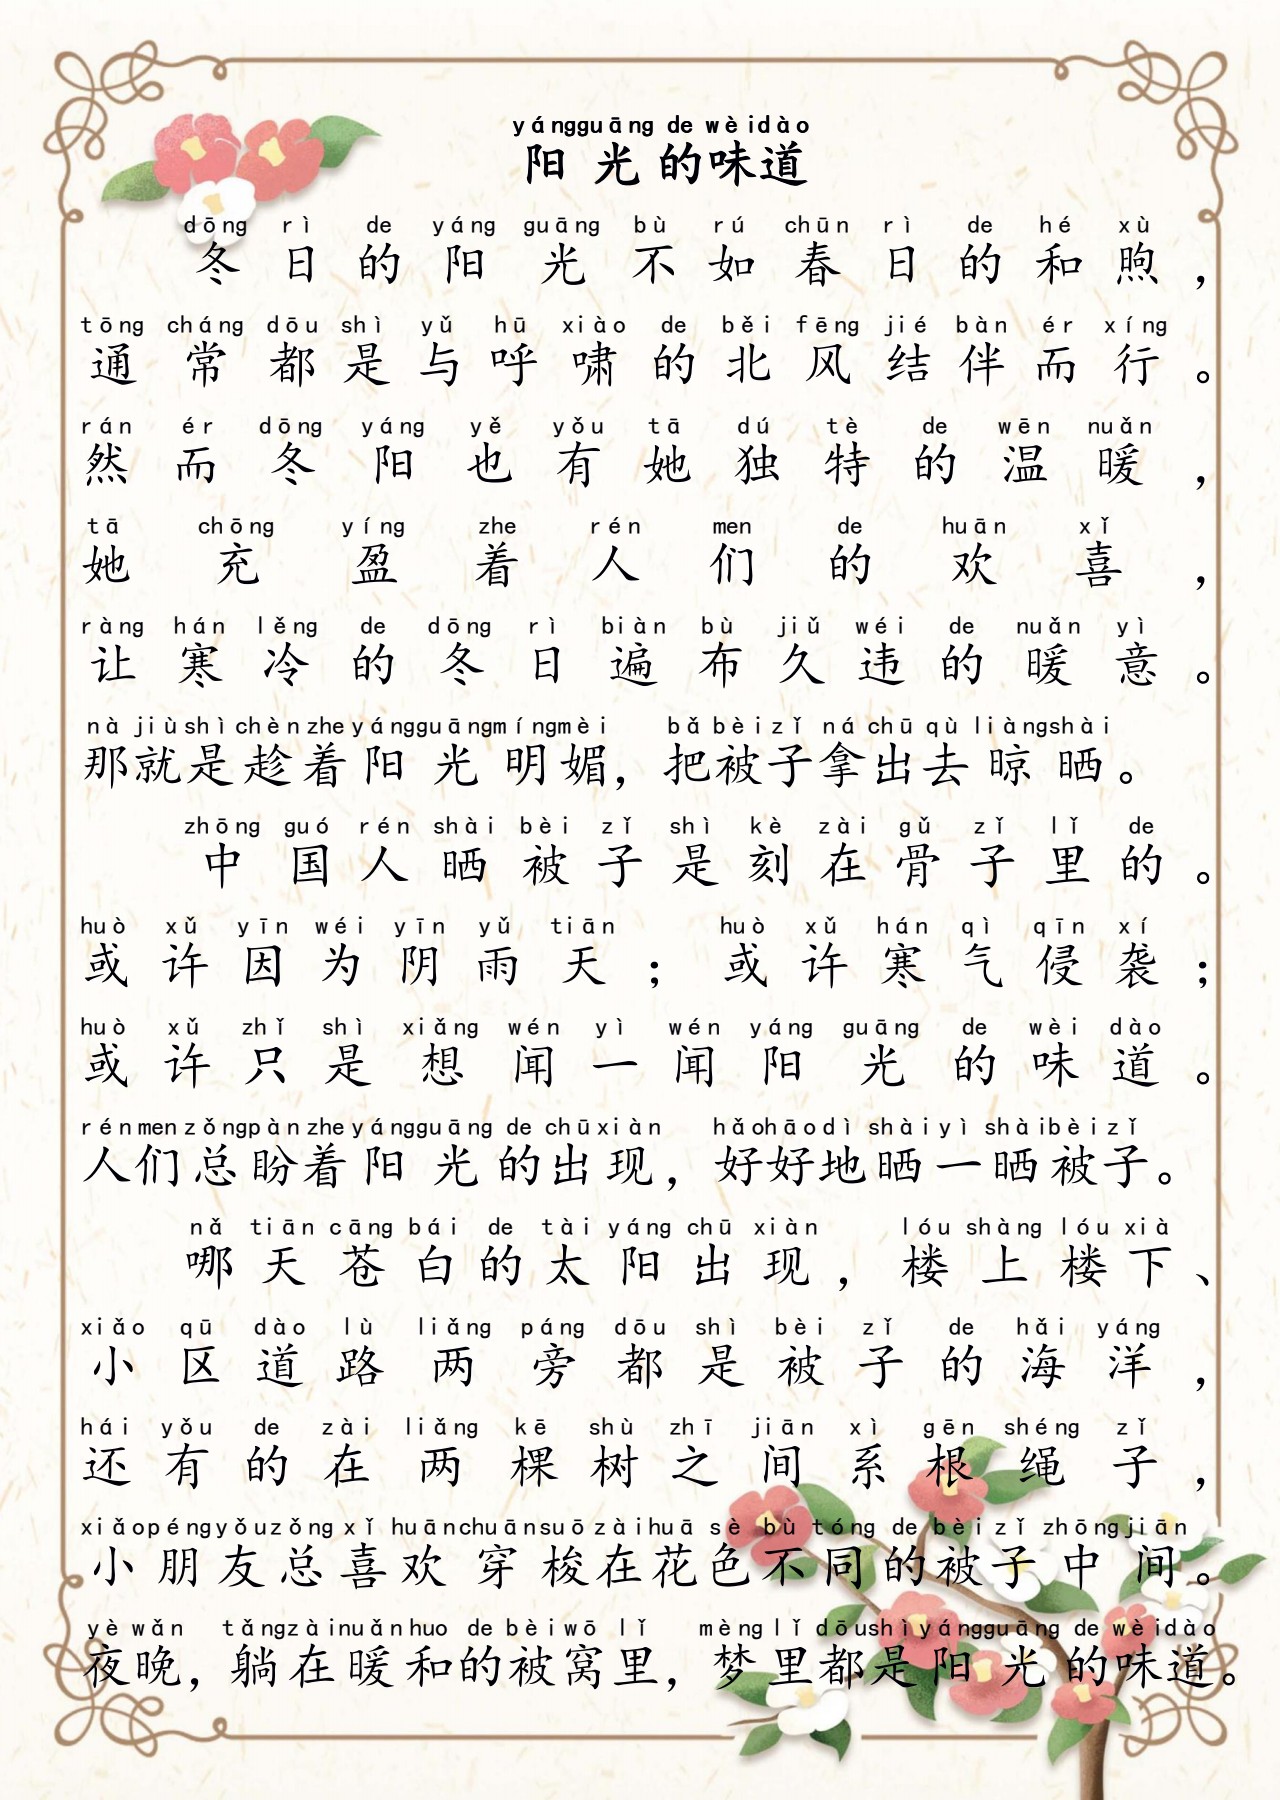 yángguāng de wèidào
阳光的味道
dōng rì de yáng guāng bù rú chūn rì de hé xù
冬日的阳光不如春日的和煦，
tōng cháng dōu shì yǔ hū xiào de běi fēng jié bàn ér xíng
通常都是与呼啸的北风结伴而行。
rán ér dōng yáng yě yǒu tā dú tè de wēn nuǎn
然而冬阳也有她独特的温暖，
tā chōng yíng zhe rén men de huān xǐ
她充盈着人们的欢喜，
ràng hán lěng de dōng rì biàn bù jiǔ wéi de nuǎn yì
让寒冷的冬日遍布久违的暖意。
nà jiù shì chèn zhe yángguāngmíngmèi bǎ bèi zǐ ná chū qù liàngshài
那就是趁着阳光明媚，把被子拿出去晾晒。
zhōng guó rén shài bèi zǐ shì kè zài gǔ zǐ lǐ de
中国人晒被子是刻在骨子里的。
huò xǔ yīn wéi yīn yǔ tiān huò xǔ hán qì qīn xí
或许因为阴雨天；或许寒气侵袭；
huò xǔ zhǐ shì xiǎng wén yì wén yáng guāng de wèi dào
或许只是想闻一闻阳光的味道。
rén men zǒngpàn zhe yángguāng de chūxiàn hǎohāodì shàiyì shàibèizǐ
人们总盼着阳光的出现，好好地晒一晒被子。
nǎ tiān cāng bái de tài yáng chū xiàn lóu shàng lóu xià
哪天苍白的太阳出现，楼上楼下、
xiǎo qū dào lù liǎng páng dōu shì bèi zǐ de hǎi yáng
小区道路两旁都是被子的海洋，
hái yǒu de zài liǎng kē shù zhī jiān xì gēn shéng zǐ
还有的在两棵树之间系根绳子，
xiǎopéngyǒuzǒng xǐ huānchuānsuōzàihuā sè bù tóng de bèizǐ zhōngjiān
小朋友总喜欢穿梭在花色不同的被子中间。
yè wǎn tǎngzàinuǎnhuo de bèiwō lǐ mènglǐ dōushìyángguāng de wèidào
夜晚，躺在暖和的被窝里，梦里都是阳光的味道。